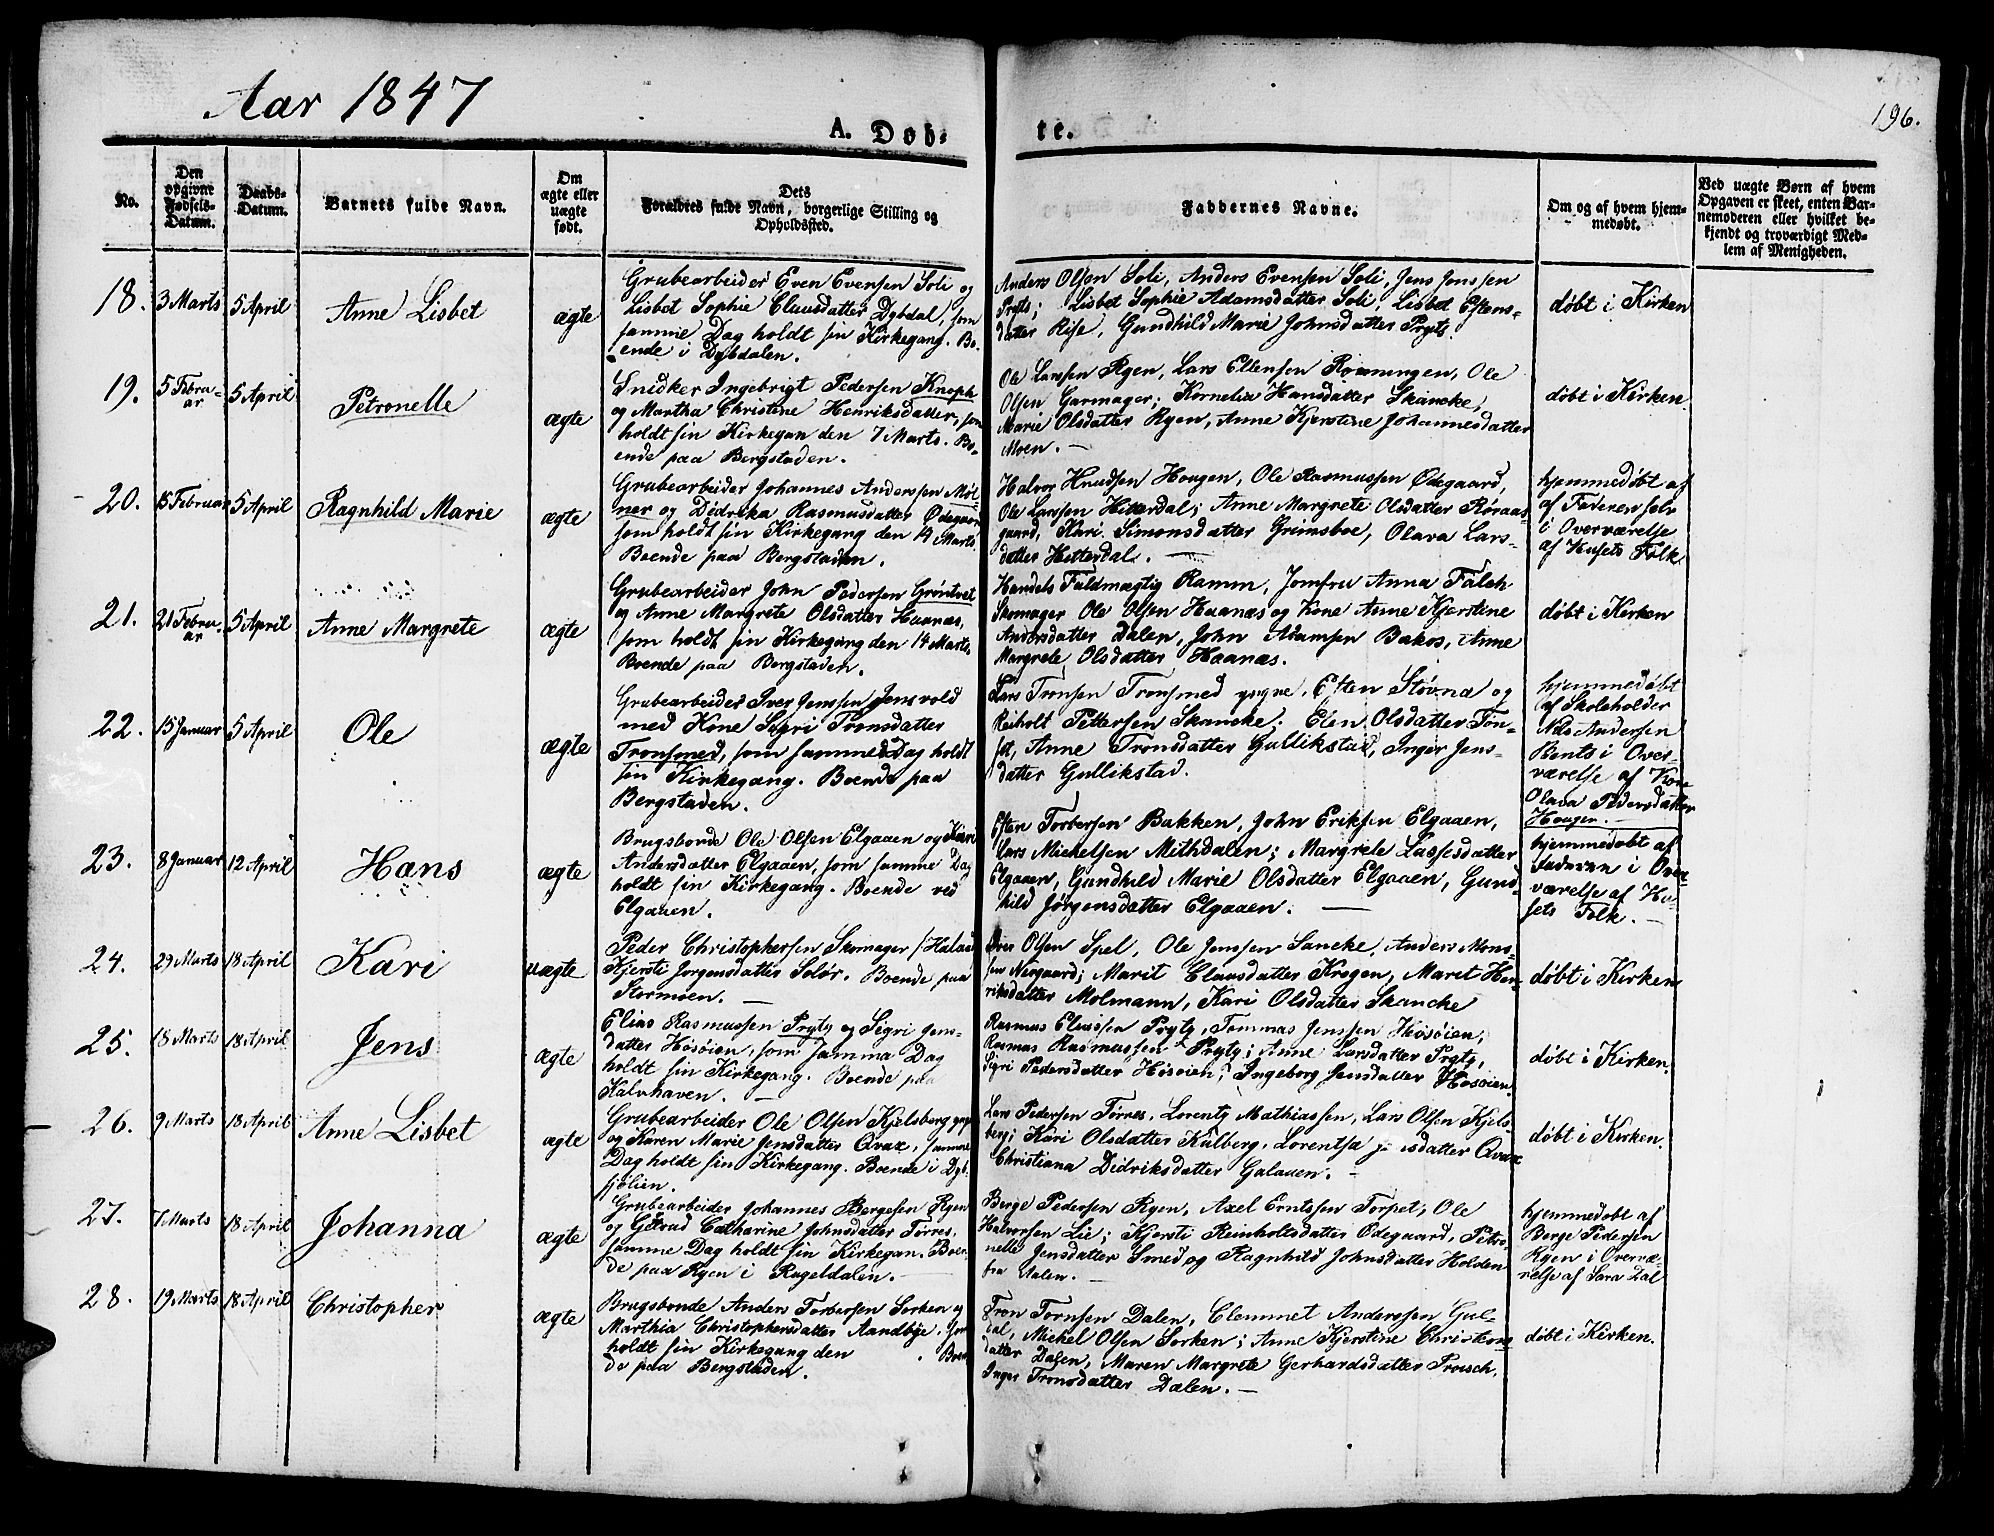 Aar 1847
196.
A. Døb-
te.
No.
Den opgivne Fødsels-Datum.
Daabs-Datum.
Barnets fulde Navn.
Om ægte eller uægte født.
Dets Forældres fulde Navn, borgerlige Stilling og Opholdssted.
Faddernes Navne.
Om og af hvem hjemmedøbt.
Ved uægte Børn af hvem Opgaven er skeet, enten Barnemoderen eller hvilket bekjendt og troværdigt Medlem af Menigheden.
18. 3 Marts 5 April Anne Lisbet ægte
Grubearbeider Even Evensen Soli og
Lisbet Sophie Clausdatter Dybdal, som
samme Dag holdt sin Kirkegang. Bo-
ende i Dybdalen.
Anders Olsen Soli, Anders Evensen Soli, Jens Jonssen
Pryts; Lisbet Sophie Adamsdatter Soli, Lisbet Eftens-
datter Rise, Gundhild Marie Johnsdatter Pryts.
døbt i Kirken
19. 5 Febru-
ar 5 April Petronelle ægte
Snidker Ingebrigt Pedersen Knoph
og Martha Christine Henriksdatter, som
holdt sin Kirkegan den 7 Marts. Bo-
ende paa Bergstaden.
Ole Larssen Ryen, Lars Ellensen Rønningen, Ole
Olsen Garmager; Kornelia Hansdatter Skancke,
Marie Olsdatter Ryen, Anne Kjerstine Johannesdatter
Moen. —
døbt i Kirken.
20. 15 Februar 5 April Ragnhild Marie ægte
Grubearbeider Johannes Anderssen Møl-
ner og Didrika Rasmusdatter Ødegaard
som holdt sin Kirkegang den 14 Marts.
Boende paa Bergstaden.
Halvor Knudsen Hougen, Ole Rasmussen Ødegaard,
Ole Larssen Hitterdal; Anne Margrete Olsdatter Røraas-
gaard, Kari Simonsdatter Grimsboe, Olava Lars-
datter Hitterdal. —
hjemmedøbt af
af Faderen selv
i Overværelse
af Husets Folk
21. 21 Febru-
ar 5 April Anne Margrete ægte
Grubearbeider John Pedersen Grøntvet
og Anne Margrete Olsdatter Haanæs,
som holdt sin Kirkegang den 14 Marts.
Boende paa Bergstaden.
Handels Fuldmægtig Ramm, Jomfru Anna Falch
Skomager Ole Olsen Haanæs og Kone Anne Kjerstine
Andersdatter Dalen, John Adamsen Bakos, Anne
Margrete Olsdatter Haanæs.
døbt i Kirken
22. 15 Januar 5 April Ole ægte
Grubearbeider Iver Jenssen Jensvold
med Kone Sigri Tronsdatter
Tronsmed, som samme Dag holdt
sin Kirkegang. Boende paa
Bergstaden.
Lars Tronsen Tronsmed yngre, Eften Støvna og
Reiholt Pettersen Skancke; Elen Olsdatter Tøn-
set, Anne Tronsdatter Gullikstad, Inger Jens-
datter Gullikstad.
hjemmedøbt
af Skoleholder
Nils Andersen
Bents i Over-
værelse af Kone
Olava Pedersdatter
Hougen. —
23. 8 Januar 12 April Hans ægte
Brugsbonde Ole Olsen Elgaaen og Kari
Andersdatter Elgaaen, som samme Dag
holdt sin Kirkegang. Boende ved
Elgaaen.
Eften Torbersen Bakken, John Eriksen Elgaaen,
Lars Mickelsen Mithdalen; Margrete Lassesdatter
Elgaaen, Gundhild Marie Olsdatter Elgaaen, Gund-
hild Jørgensdatter Elgaaen. —
hjemmedøbt af
Faderen i Over-
værelse af Hu-
sets Folk. —
24. 29 Marts 18 April Kari uægte
Peder Christophersen Skomager
Kjersti Jørgensdatter Solør. Boende paa
Stormoen. —
Iver Olsen Spel, Ole Jenssen Sancke, Anders Mons-
sen Nergaard; Marit Clausdatter Krogen, Marit Hen-
riksdatter Molmann, Kari Olsdatter Skancke
døbt i Kirken
25. 18 Marts 18 April Jens ægte
Elias Rasmussen Prytz og Sigri Jens-
datter Høsøien, som samma Dag
holdt sin Kirkegang. Boende paa
Halvhaven. —
Rasmus Eliassen Prytz, Tommas Jenssen Høsøien,
Rasmus Rasmussen Prytz; Anne Larsdatter Prytz,
Sigri Pedersdatter Høsøien, Ingeborg Jensdatter Høsøien.
døbt i Kirken.
26. 9 Marts 18 April Anne Lisbet ægte
Grubearbeider Ole Olsen Kjelsberg
og Karen Marie Jensdatter Qvax, samme
Dag holdt sin Kirkegang. Boende i Dyb-
sjølien.
Lars Pedersen Tørres, Lorentz Mathiassen, Lars Olsen Kjels-
berg; Kari Olsdatter Kulberg, Lorentsa Qvax
Christiana Didriksdatter Galaaen. —
døbt i Kirken.
27. 7 Marts 18 April Johanna ægte
Grubearbeider Johannes Bergesen Ryen
og Gjetrud Catharine Johnsdatter Tørres,
samme Dag holdt sin Kirkegan. Boen-
de paa Ryen i Rugeldalen. —
Berge Pedersen Ryen, Axel Erntssen Torpet, Ole
Halvorsen Lie; Kjersti Reinholtsdatter Ødegaard, Petro-
nelle Jensdatter Smed og Ragnhild Johnsdatter Holden
fra Aalen. —
hjemmedøbt af
Berge Pedersen
Ryen i Overvæ-
relse af Sara Dal
28. 19 Marts 18 April Christopher ægte
Brugsbonde Anders Torbersen Sorken og
Marthia Christophersdatter Aandbye, som
holdt sin Kirkegang den . Boen-
de paa Bergstaden.
Tron Tornsen Dalen, Clemmet Anderssen Gul-
dal, Mickel Olsen Sorken; Anne Kjerstine Christens-
datter Dalen, Maren Margrete Gerhardsdatter Proisch,
Inger Tronsdatter Dalen. —
døbt i Kirken.